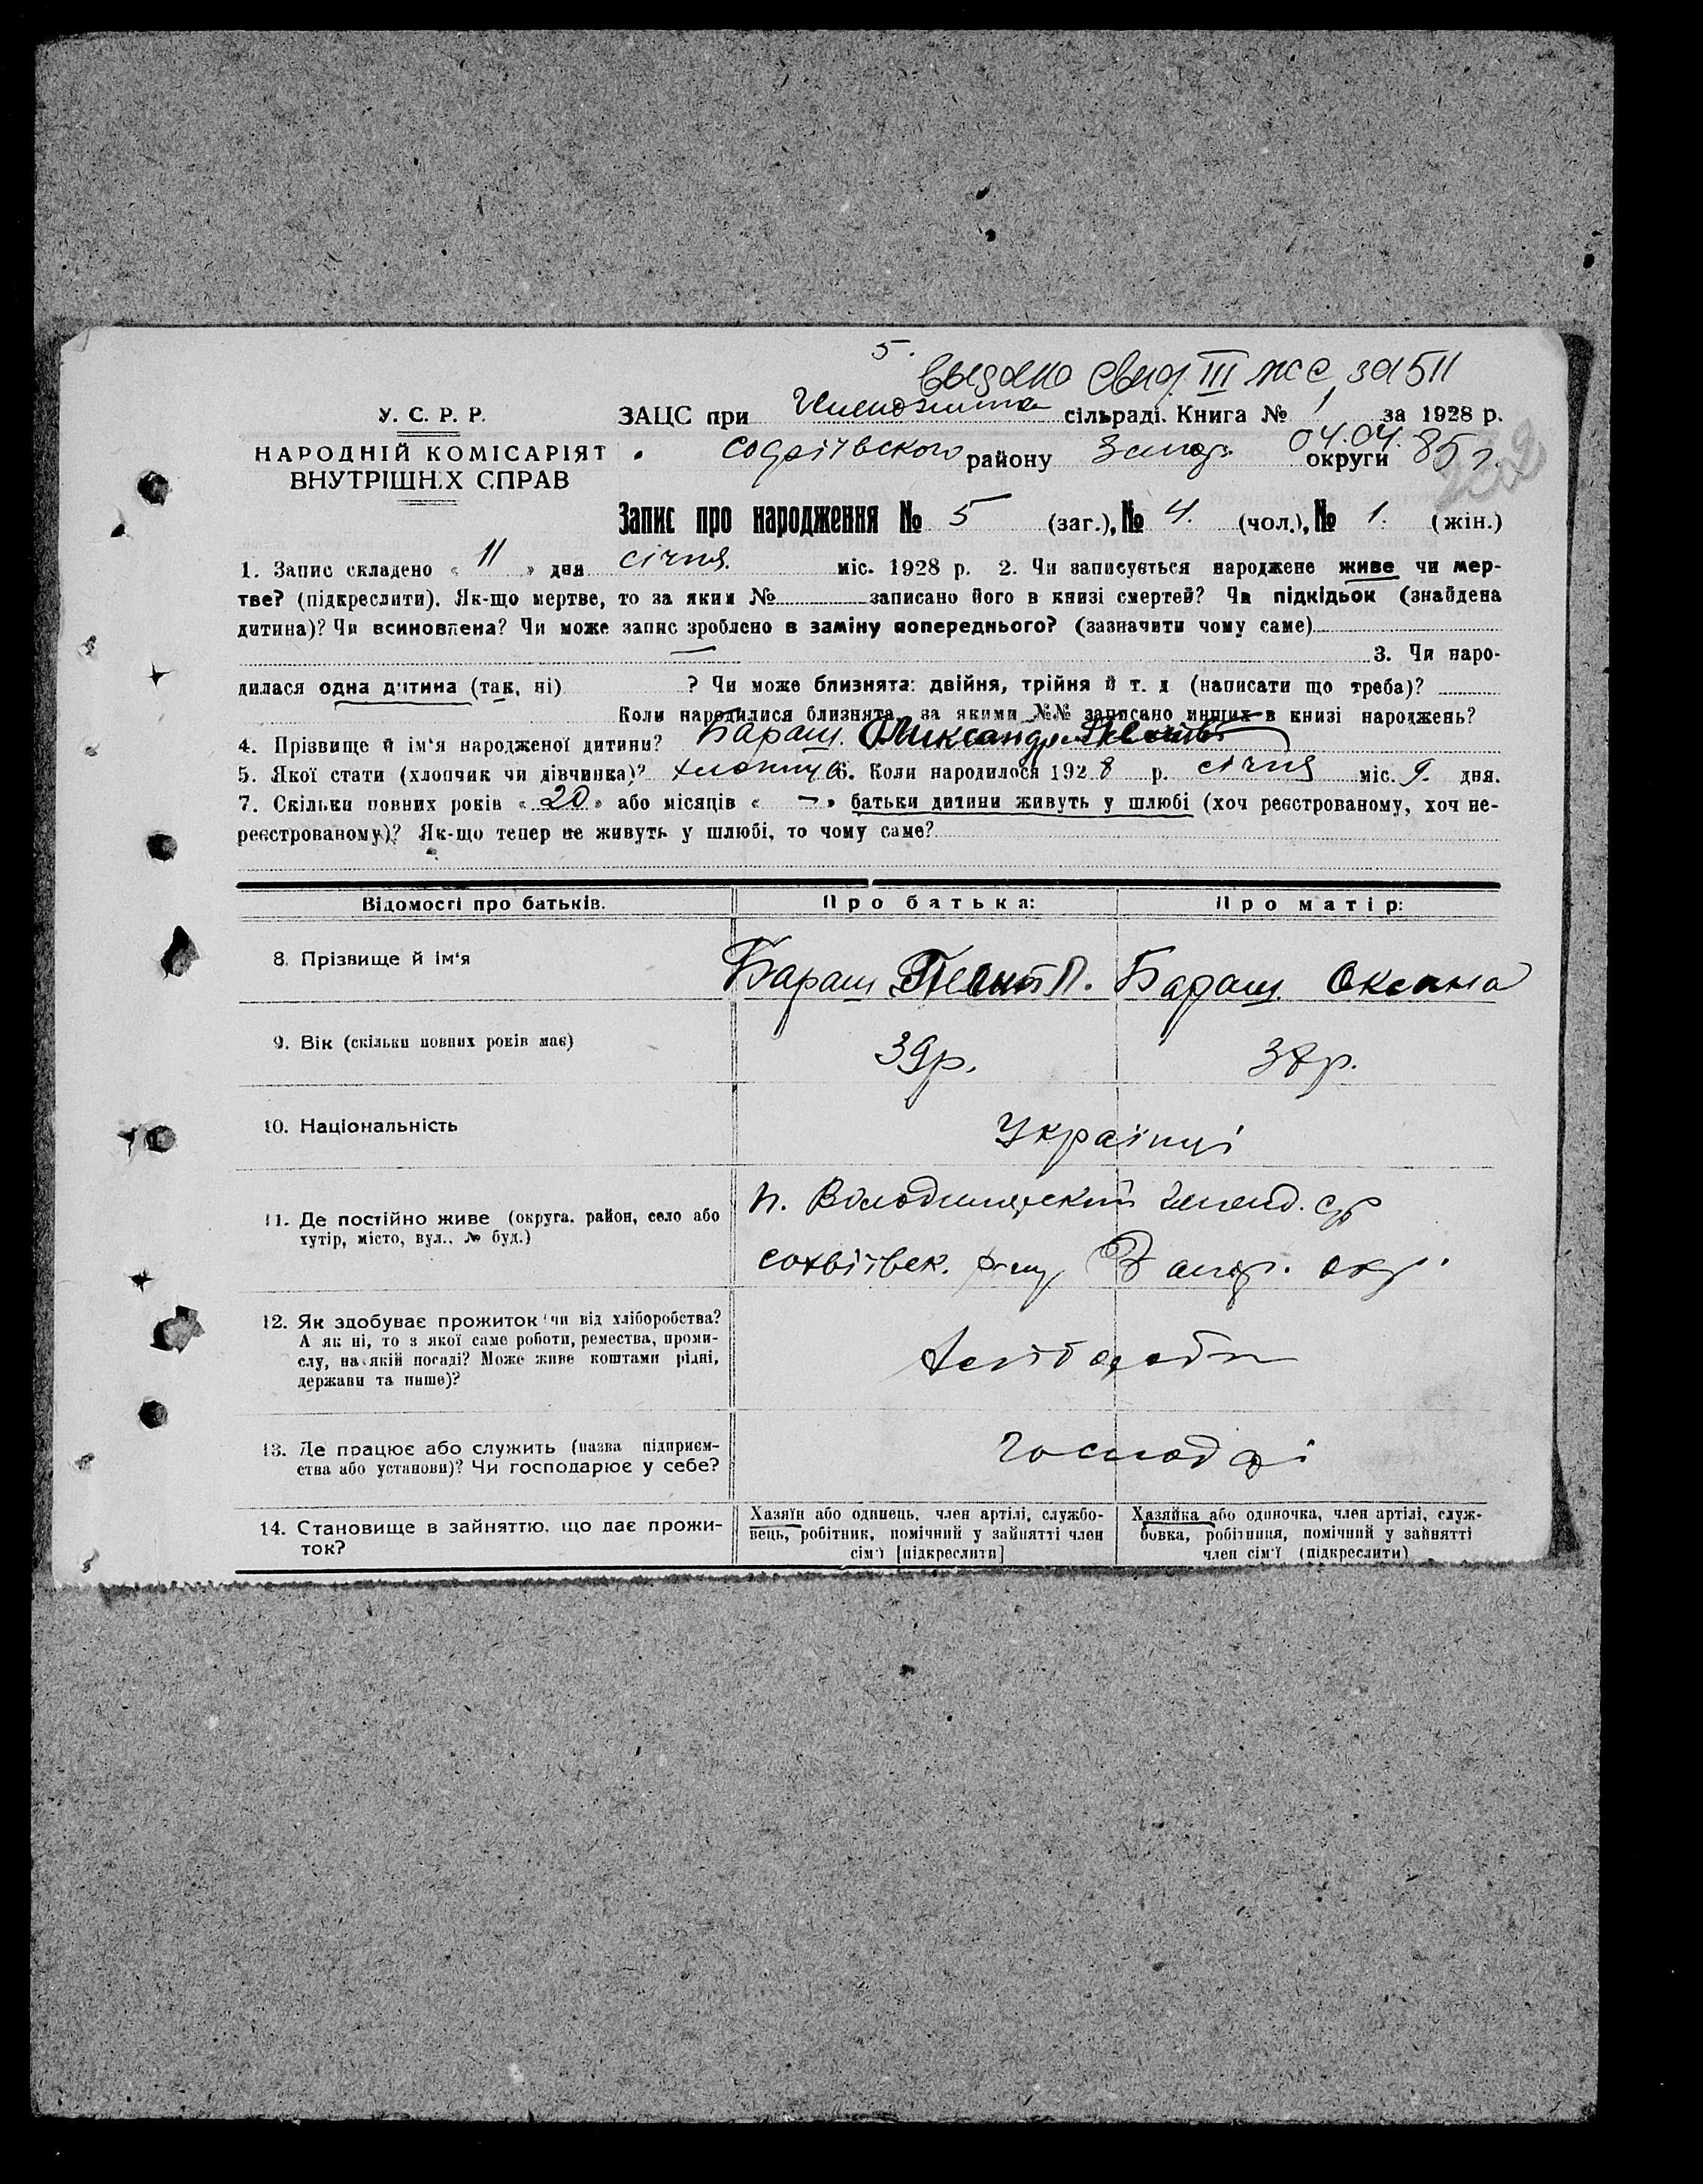 5.
выдано свид. III жс за 511
У. С. Р. Р.
ЗАЦС при сільраді. Книга № 1 за 1928 р.
04.04.85 г.
НАРОДНІЙ КОМІСАРІЯТ
району Запор. округи
ВНУТРІШНІХ СПРАВ
Запис про народження № 5 (заг.), № 4. (чол.), № 1. (жін.)
1. Запис складено « 11 » дня січня. міс. 1928 р. 2. Чи записується народжене живе чи мер-
тве? (підкреслити). Як-що мертве, то за яким № записано його в книзі смертей? Чи підкідьок (знайдена
дитина)? Чи всиновлена? Чи може запис зроблено в заміну попереднього? (зазначити чому саме)
— 3. Чи наро-
дилася одна дитина (так, ні) ? Чи може близнята: двійня, трійня й т. д (написати що треба)?
Коли народилися близнята, за якими №№ записано инших в книзі народжень?
4. Прізвище й ім'я народженої дитини? Бараш. Олександр
5. Якої стати (хлопчик чи дівчинка)? хлопчик 6. Коли народилося 1928 р. січня міс. 9. дня.
7. Скільки повних років « 20 » або місяців « — » батьки дитини живуть у шлюбі (хоч реєстрованому, хоч не-
реєстрованому)? Як-що тепер не живуть у шлюбі, то чому саме?
Відомості про батьків. Про батька: Про матір:
8. Прізвище й ім'я Бараш П. Бараш Оксана
9. Вік (скільки повних років має) 39р. 37р.
10. Національність Українці
11. Де постійно живе (округа, район, село або
хутір, місто, вул., № буд.)
п. Володимирский
Запор. окр.
12. Як здобуває прожиток (чи від хліборобства?
А як ні, то з якої саме роботи, ремества, проми-
слу, на якій посаді? Може живе коштами рідні,
держави та инше)?
хлібороби
13. Де працює або служить (назва підприєм-
ства або установи)? Чи господарює у себе?
господарі
14. Становище в зайняттю, що дає прожи-
ток?
Хазяїн або одинець, член артілі, службо-
вець, робітник, помічний у зайнятті член
сім'ї [підкреслити]
Хазяйка або одиночка, член артілі, служ-
бовка, робітниця, помічний у зайнятті
член сім'ї (підкреслити)